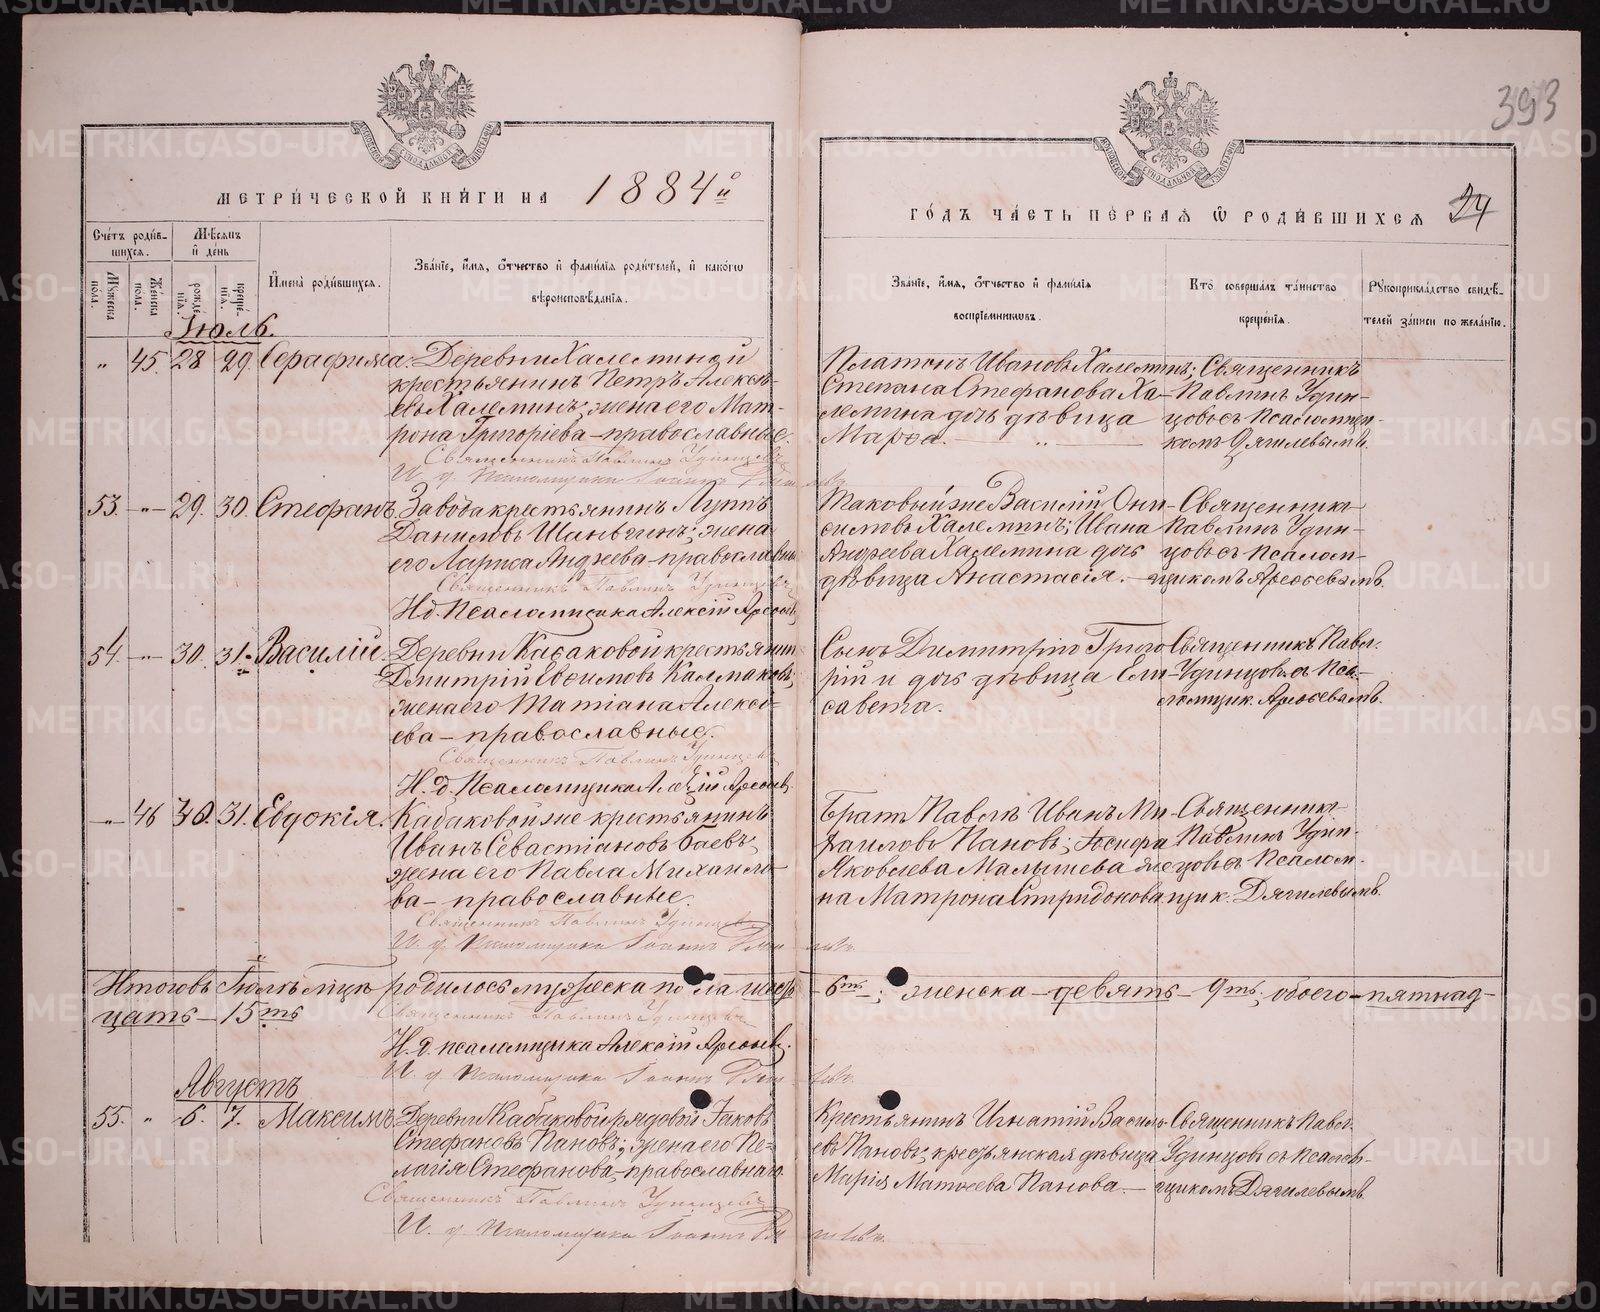 393
МЕТРИ́ЧЕСКОЙ КНИ́ГИ НА 1884й
ГО́ДЪ ЧА́СТЬ ПЕ́РВАѦ Ѡ РОДИ́ВШИХСѦ
Сче́тъ роди́в-
шихсѧ.
Мѣ́сѧцъ
и҆ де́нь
Мꙋжеска пола.
Женска пола.
рожде-
нїѧ.
креще-
нїѧ.
И҆мена̀ роди́вшихсѧ.
Зва́нїе, и҆́мѧ, ѻ҆́тчество и҆ фами́лїѧ роди́телей, и҆ како́гѡ
вѣроисповѣ́данїѧ.
Зва́нїе, и҆́мѧ, ѻ҆́тчество и҆ фами́лїѧ
воспрїе́мникѡвъ.
Кто̀ соверша́лъ та́инство
креще́нїѧ.
Рꙋкоприкла́дство свидѣ́-
телей за́писи по жела́нїю.
Іюль.
" 45. 28 29. Серафима. Деревни Халемкиной
крестьянинъ Петръ Алексѣ-
евъ Халеминъ; жена его Мат-
рона Григоріева – православные.
Священникъ Павлинъ Удинцевъ
И. д. Псаломщика Іоаннъ
Платонъ Ивановъ Халеминъ;
Степана Стефанова Ха-
лемина дочь дѣвица
Марѳа.
Священникъ
Павлинъ Удин-
цовъ съ псаломщи-
комъ Дягилевымъ.
53. " 29. 30. Стефанъ. Завода крестьянинъ Луппъ
Даниловъ Шаньгинъ; жена
его Лариса Андреева – православные
Священникъ Павлинъ Удинцевъ
И.д. Псаломщика Алексій Арефьевъ
Таковый же Василій Они-
симовъ Халеминъ; Ивана
Андреева Халемина дочь
дѣвица Анастасія.
Священникъ
Павлинъ Удин-
цовъ съ псалом-
щикомъ Арефьевымъ.
54. " 30. 31. Василій. Деревни Кабаковой крестьянинъ
Димитрій Евѳимовъ Калмаковъ;
жена его Татіана Алексѣ-
ева – православные.
Священникъ Павлинъ Удинцевъ
И. д. Псаломщика Алексій Арефьевъ
Сынъ Димитрій Григо-
рій и дочь дѣвица Ели-
савета.
Священникъ Павл.
Удинцовъ съ Пса-
ломщик. Арефьевымъ.
" 46 30. 31. Евдокія. Кабаковой же крестьянинъ
Иванъ Севастіановъ Баевъ;
жена его Павла Михаило-
ва – православные.
Священникъ Павлинъ Удинцевъ
И. д. Псаломщика Іоаннъ
Братъ Павлы Иванъ Ми-
хаиловъ Пановъ; Іосифа
Яковлева Малышева же-
на Матрона Спиридонова
Священникъ
Павлинъ Удин-
цовъ съ Псалом-
щик. Дягилевымъ.
Итого въ Іюлѣ мцѣ родилось мужеска пола шесть – 6ть; женска – девять – 9ть, обоего – пятнад-
цать – 15ть
Священникъ Павлинъ Удинцевъ
И. д. псаломщика Алексій Арефьевъ.
И. д. Псаломщика Іоаннъ
Августъ
55. " 6. 7. Максимъ. Деревни Кабаковой рядовой Іаковъ
Стефановъ Пановъ; жена его Пе-
лагія Стефанова – православные
Священникъ Павлинъ Удинцевъ
И. д. Псаломщика Іоаннъ
Крестьянинъ Игнатій Василь-
евъ Пановъ; крестьянская дѣвица
Марія Матѳеева Панова.
Священникъ Павл.
Удинцовъ съ псалом-
щикомъ Дягилевымъ.
METRIKI.GASO-URAL.RU